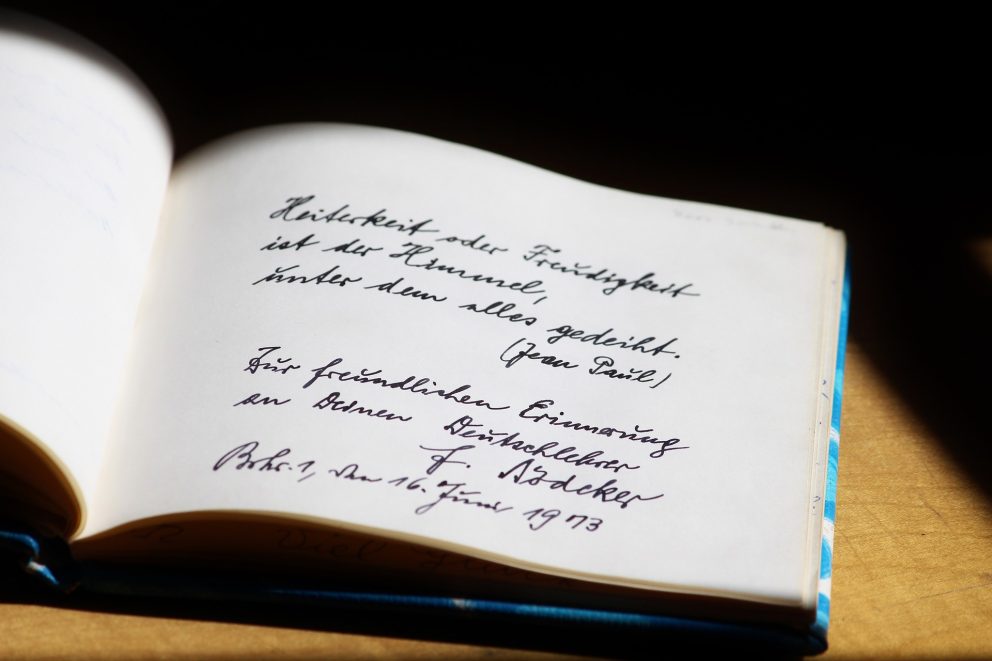 Heiterkeit oder Freudigkeit
ist der Himmel,
unter dem alles gedeiht.
(Jean Paul)
Zur freundlichen Erinnerung
an Deinen Deutschlehrer
F.
1, den 16. Juni 1973
Viel